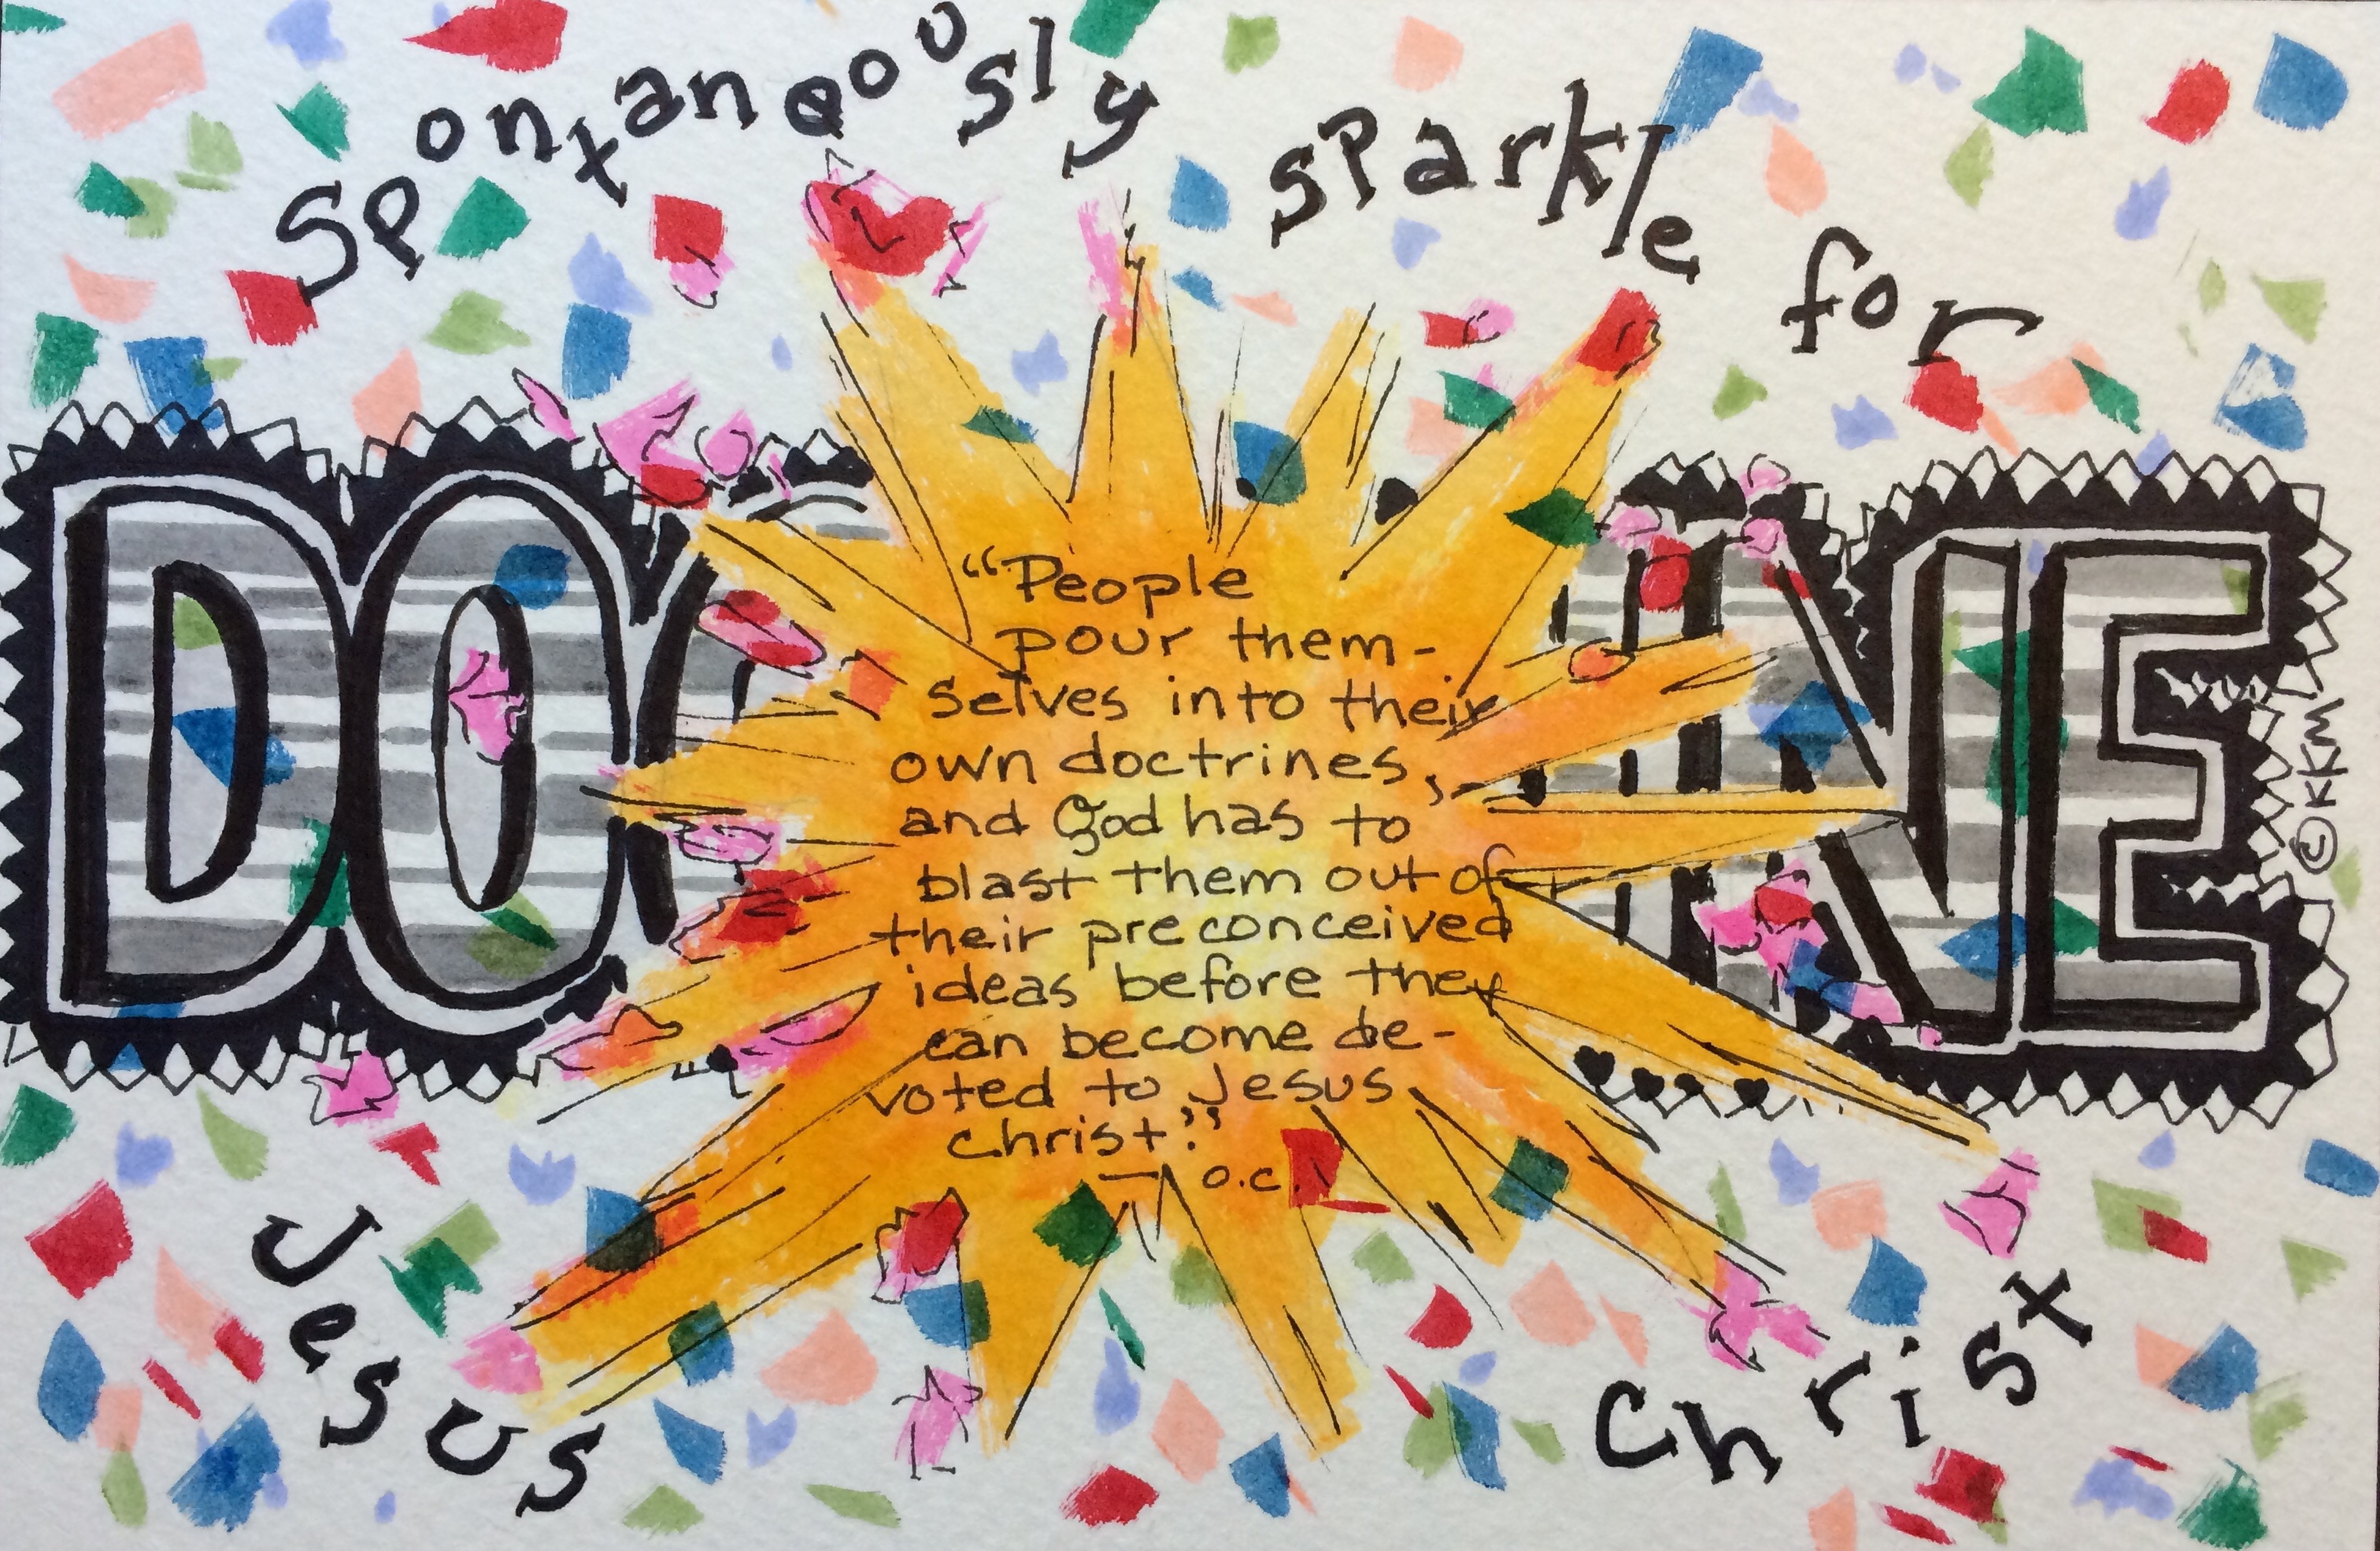 Spontaneously sparkle for
DOC INE
"People
pour them-
selves into their
own doctrines,
and God has to
blast them out of
their preconceived
ideas before they
can become de-
voted to Jesus
Christ."
— o.c.
©KKM
Jesus Christ